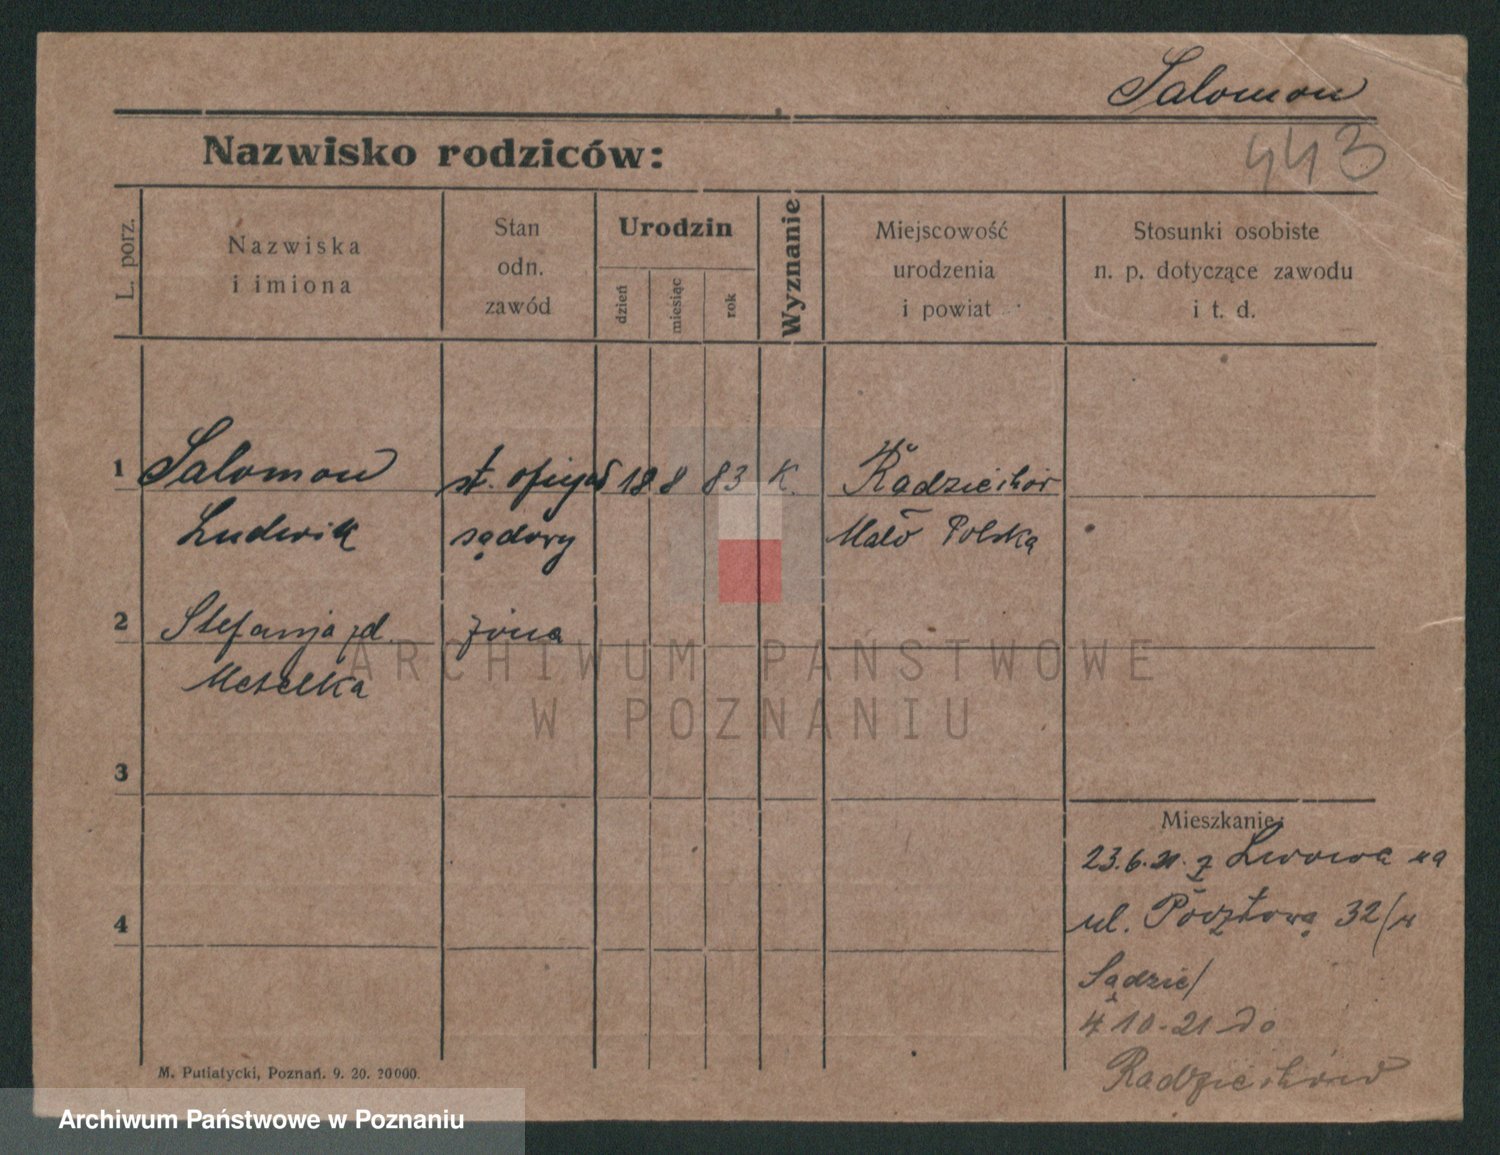 Salomon
443
Nazwisko rodziców:
L. porz.
Nazwiska
i imiona
Stan
odn.
zawód
Urodzin
dzień
miesiąc
rok
Wyznanie
Miejscowość
urodzenia
i powiat
Stosunki osobiste
n. p. dotyczące zawodu
i t. d.
1 Salomon st. 18 8 83 K.
Ludwik sądowy Mało Polska
2 Stefanja żona
3
Mieszkanie:
23.6.21. z Lwowa na
4
ul. Pocztową 32/w
Sądzie/
4 10-21 do
M. Putiatycki, Poznań. 9. 20. 20000.
ARCHIWUM PAŃSTWOWE
W POZNANIU
Archiwum Państwowe w Poznaniu